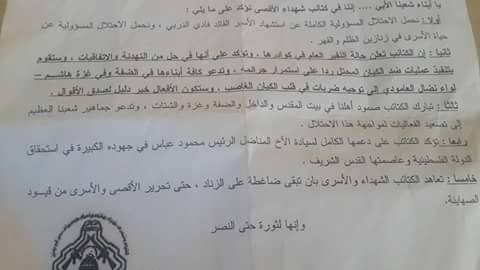 يا أبناء شعبنا الأبي .... إننا في كتائب شهداء الأقصى نؤكد على ما يلي :
أولا : نحمل الاحتلال المسؤولية الكاملة عن استشهاد الأسير القائد فادي الدربي ، ونحمل الاحتلال المسؤولية عن
حياة الأسرى في زنازين الظلم والقهر .
ثانيا : إن الكتائب تعلن حالة النفير العام في كوادرها ، ونؤكد على أنها في حل من التهدئة والاتفاقيات ، وستقوم
بتنفيذ عمليات ضد الكيان المحتل ردا على استمرار جرائمه ، وتدعو كافة أبناءها في الضفة وفي غزة هاشم –
لواء نضال العامودي إلى توجيه ضربات في قلب الكيان الغاصب ، وستكون الأفعال خير دليل لصدق الأقوال .
ثالثا : تبارك الكتائب صمود أهلنا في بيت المقدس والداخل والضفة وغزة والشتات ، وتدعو جماهير شعبنا العظيم
إلى تصعيد الفعاليات لمواجهة هذا الاحتلال .
رابعا : تؤكد الكتائب على دعمها الكامل لسيادة الأخ المناضل الرئيس محمود عباس في جهوده الكبيرة في استحقاق
الدولة الفلسطينية وعاصمتها القدس الشريف .
خامسا : تعاهد الكتائب الشهداء والأسرى بان تبقى ضاغطة على الزناد ، حتى تحرير الأقصى والأسرى من قيود
الصهاينة.
وإنها لثورة حتى النصر